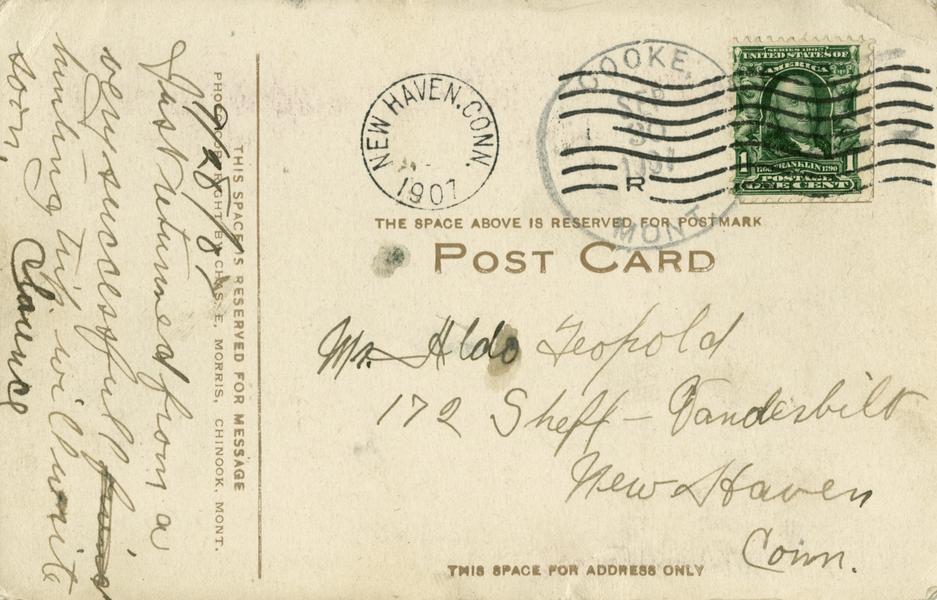 9/28/07
Just returned from a
very successful
hunting trip will write
soon.
Clarence
THIS SPACE IS RESERVED FOR MESSAGE
PHOTO COPYRIGHT BY CHAS. E. MORRIS, CHINOOK, MONT.
NEW HAVEN. CONN.
1907
COOKE,
SEP
30
1907
MONT
R
SERIES 1902
UNITED STATES OF
AMERICA
1 1
1706 FRANKLIN 1790
POSTAGE
ONE CENT
THE SPACE ABOVE IS RESERVED FOR POSTMARK
POST CARD
Mr. Aldo Leopold
172 Sheff - Vanderbilt
New Haven
Conn.
THIS SPACE FOR ADDRESS ONLY